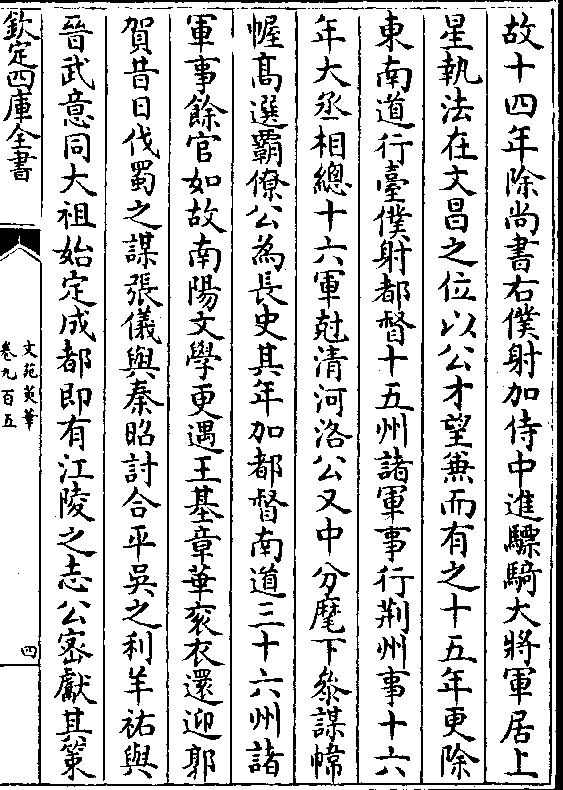 故十四年除尚書右僕射加侍中進驃騎大將軍居上
星執法在文昌之位以公才望兼而有之十五年更除
東南道行臺僕射都督十五州諸軍事行荆州事十六
年大丞相總十六軍尅清河洛公又中分麾下叅謀幃
幄髙選霸僚公為長史其年加都督南道三十六州諸
軍事餘官如故南陽文學更遇王基章華衮衣還迎郭
賀昔日伐蜀之謀張儀與秦昭計合平吳之利羊祜與
晉武意同大祖始定成都即有江陵之志公密獻其策
欽定四庫全書
文苑英華
卷九百五
四